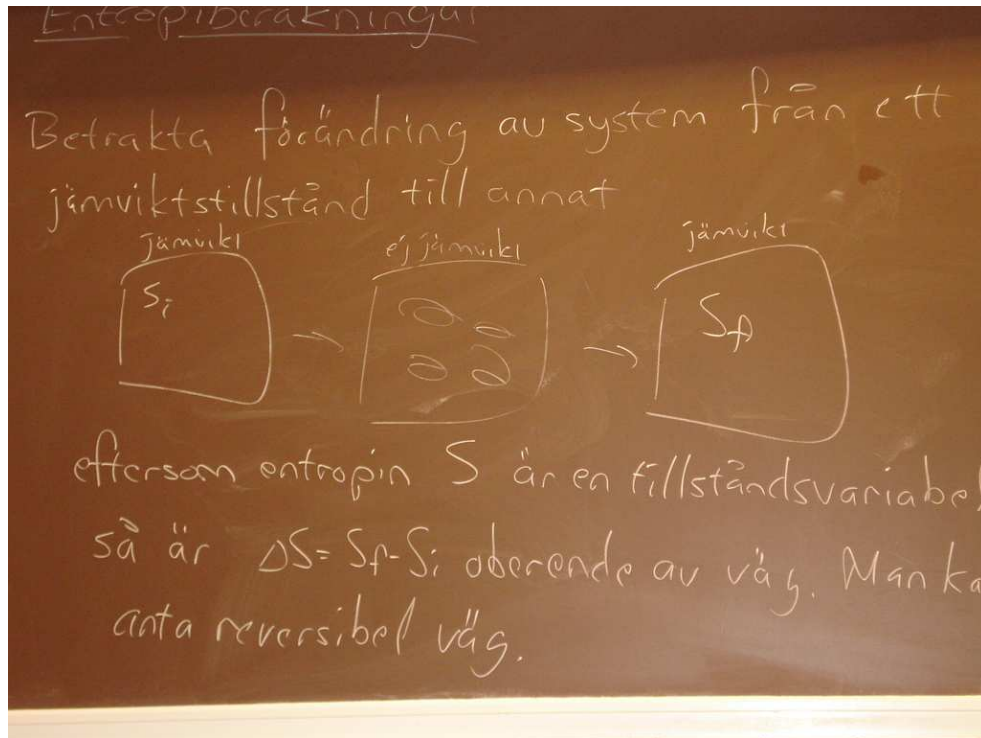 Entropiberäkningar
Betrakta förändring av system från ett
jämviktstillstånd till annat
jämvikt
ej jämvikt
jämvikt
Si
Sf
eftersom entropin S är en tillståndsvariabel
så är ΔS = Sf - Si oberende av väg. Man ka
anta reversibel väg.